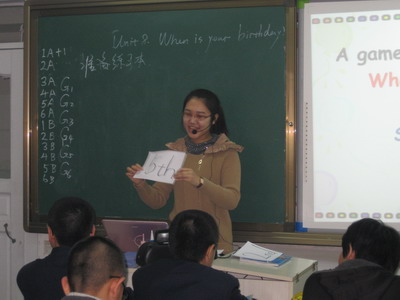 Unit 8 When is your birthday?
准备练习本
1A +1
2A
3A G1
4A
5A G2
6A
1B G3
2B G4
3B
4B G5
5B
6B G6
5th
A game
Wh
S